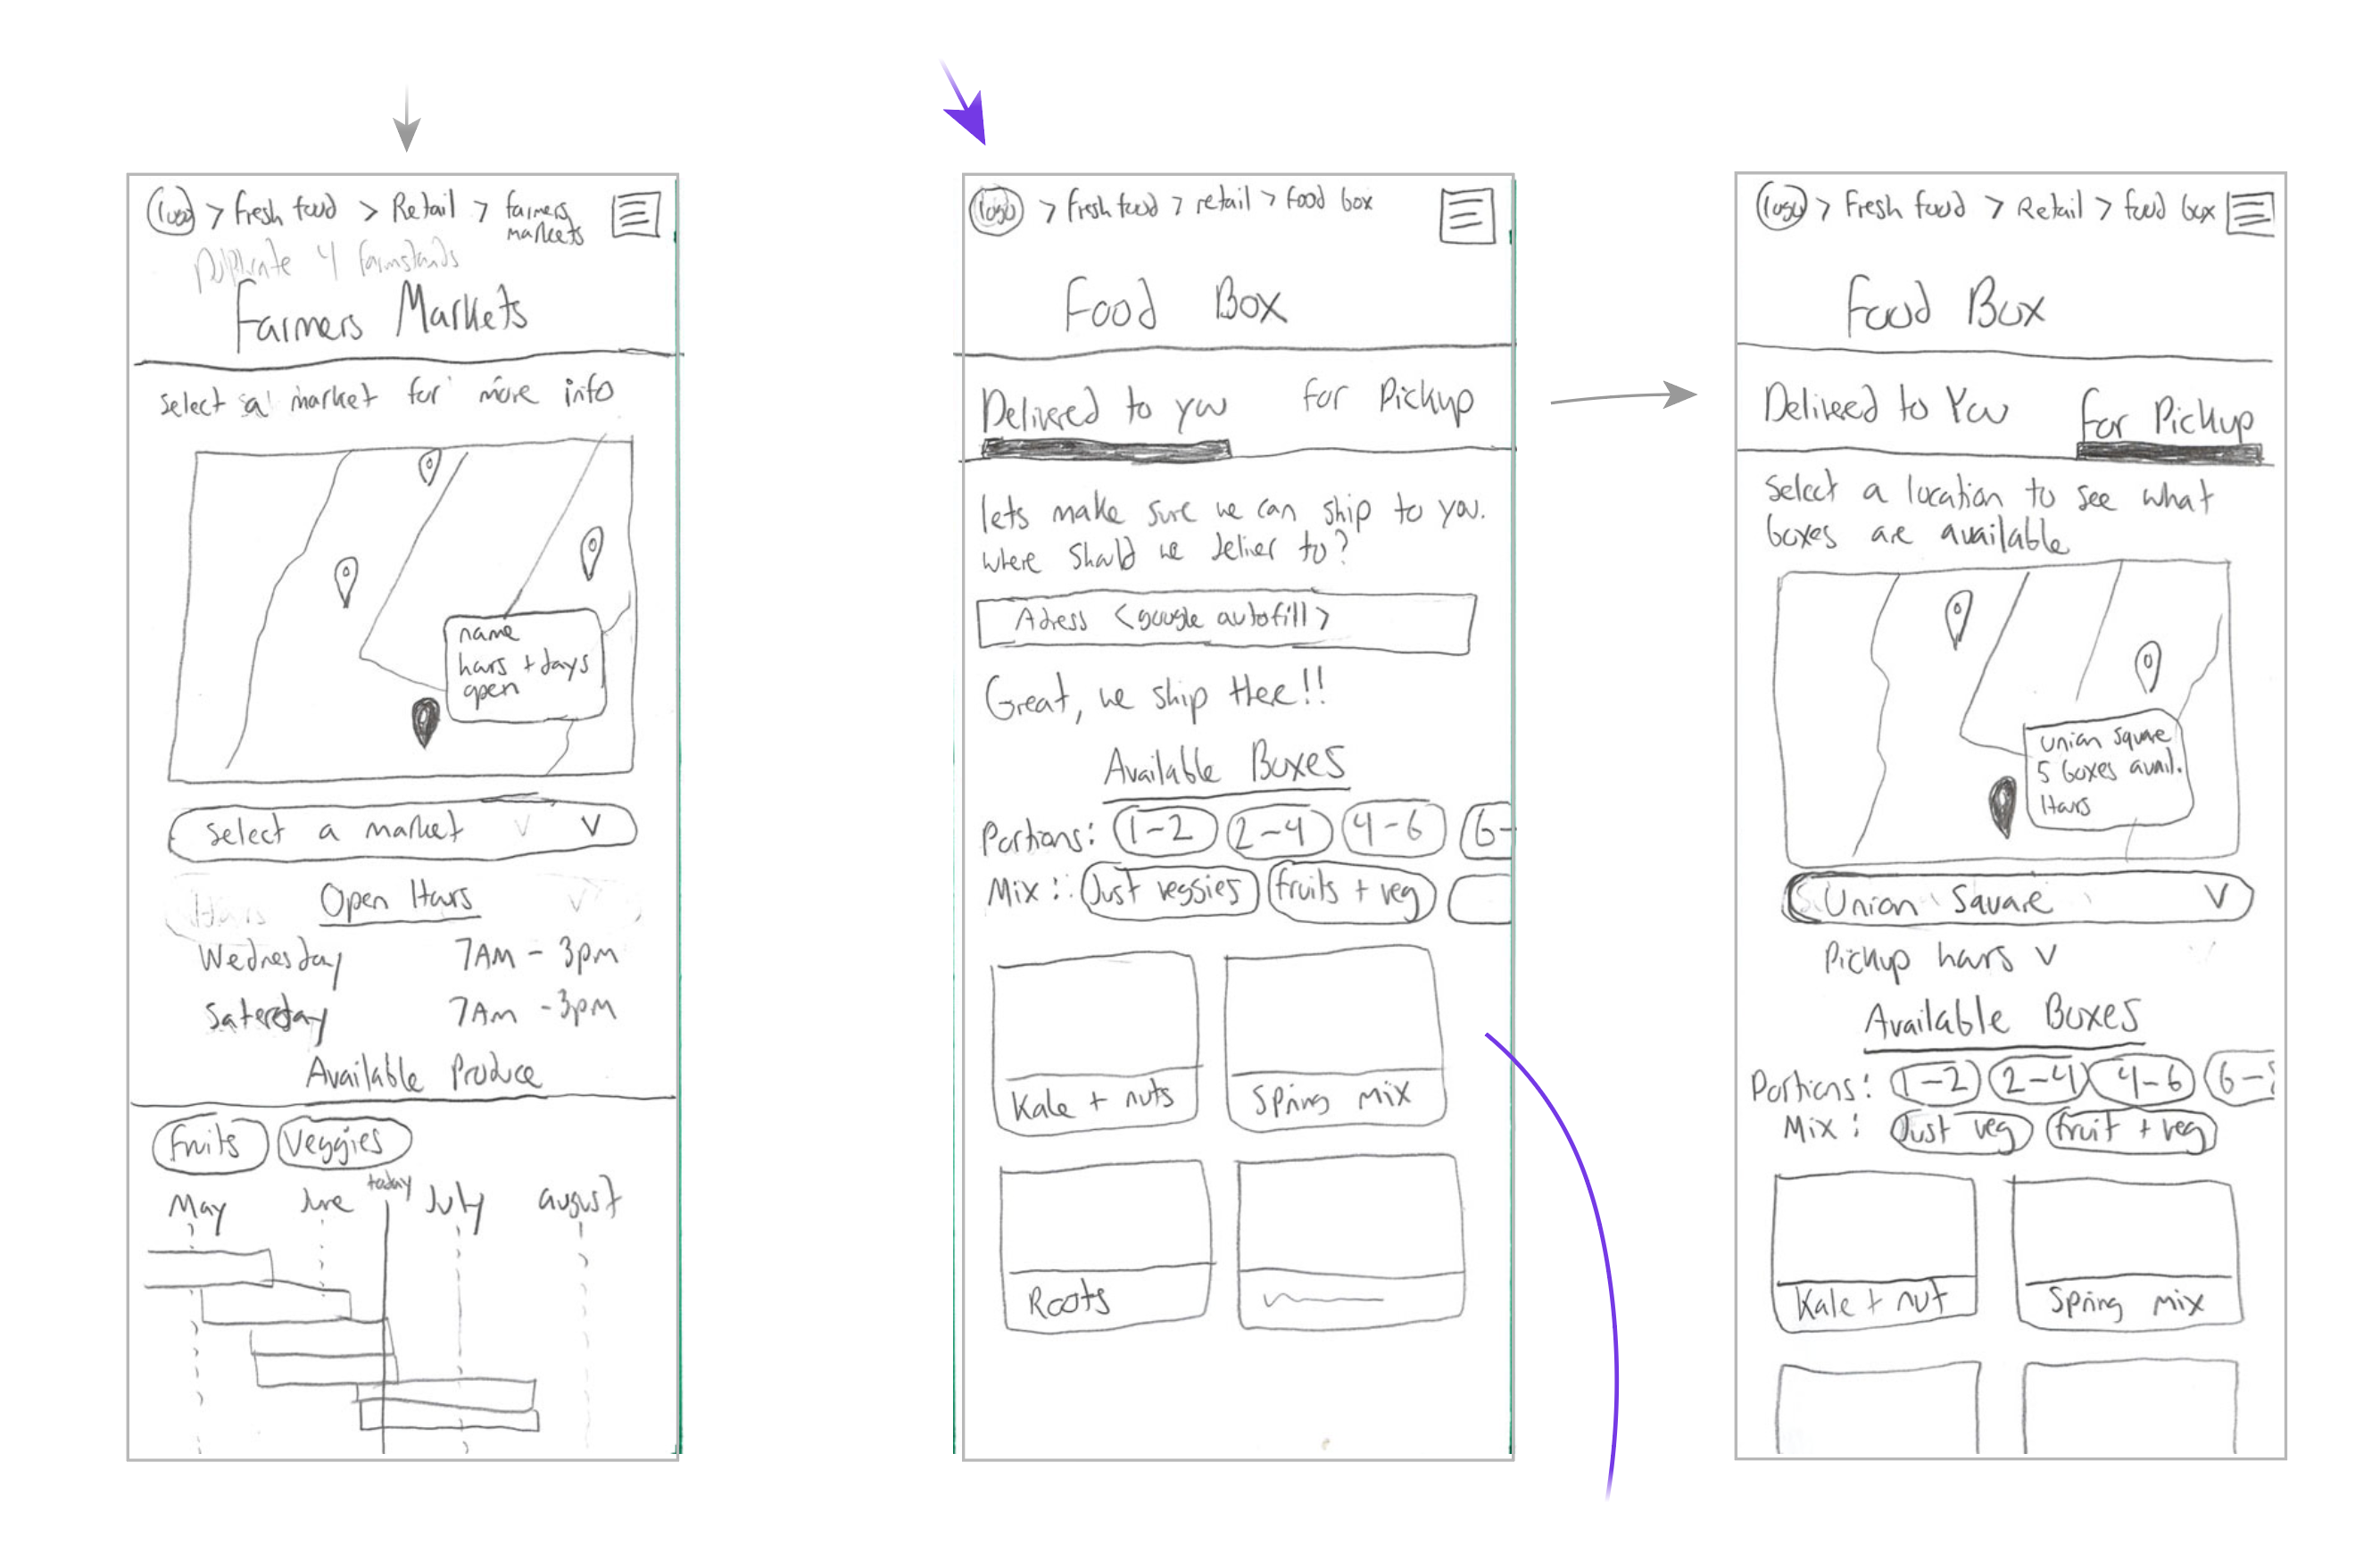 logo > Fresh food > Retail > farmers markets
Duplicate 4 farmstands
Farmers Markets
Select a market for more info
name
hours + days
open
Select a market V
Hours V
Open Hours
Wednesday 7AM - 3pm
Saterday 7AM - 3pm
Available Produce
Fruits Veggies
today
May June July august
logo > Fresh food > retail > Food box
Food Box
Delivered to you For Pickup
lets make sure we can ship to you.
where should we deliver to?
Adress <google autofill>
Great, we ship there!!
Available Boxes
Portions: 1-2 2-4 4-6 6-
Mix: Just veggies fruits + veg
Kale + nuts Spring mix
Roots
logo > Fresh food > Retail > food box
Food Box
Delivered to You For Pickup
Select a location to see what
boxes are available
Union Square
5 boxes avail.
Hours
Union Square V
Pickup hours V
Available Boxes
Portions: 1-2 2-4 4-6 6-8
Mix: Just veg fruit + veg
Kale + nut Spring mix